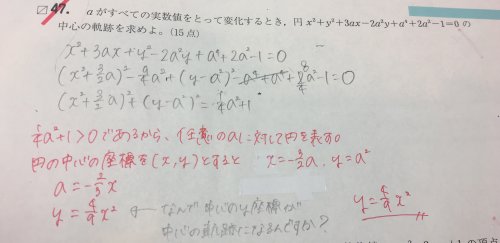 47. aがすべての実数値をとって変化するとき,円 x²+y²+3ax-2a²y+a⁴+2a²-1=0 の
中心の軌跡を求めよ。(15点)
x²+3ax+y²-2a²y+a⁴+2a²-1=0
(x+3/2a)²-9/4a²+(y-a²)²-a⁴+a⁴+8/4a²-1=0
(x+3/2a)²+(y-a²)²=1/4a²+1
1/4a²+1>0であるから、任意のaに対して円を表す。
円の中心の座標を(x,y)とすると x=-3/2a, y=a²
a=-2/3x
y=4/9x² ← なんで中心のy座標が
中心の軌跡になるんですか?
y=4/9x²